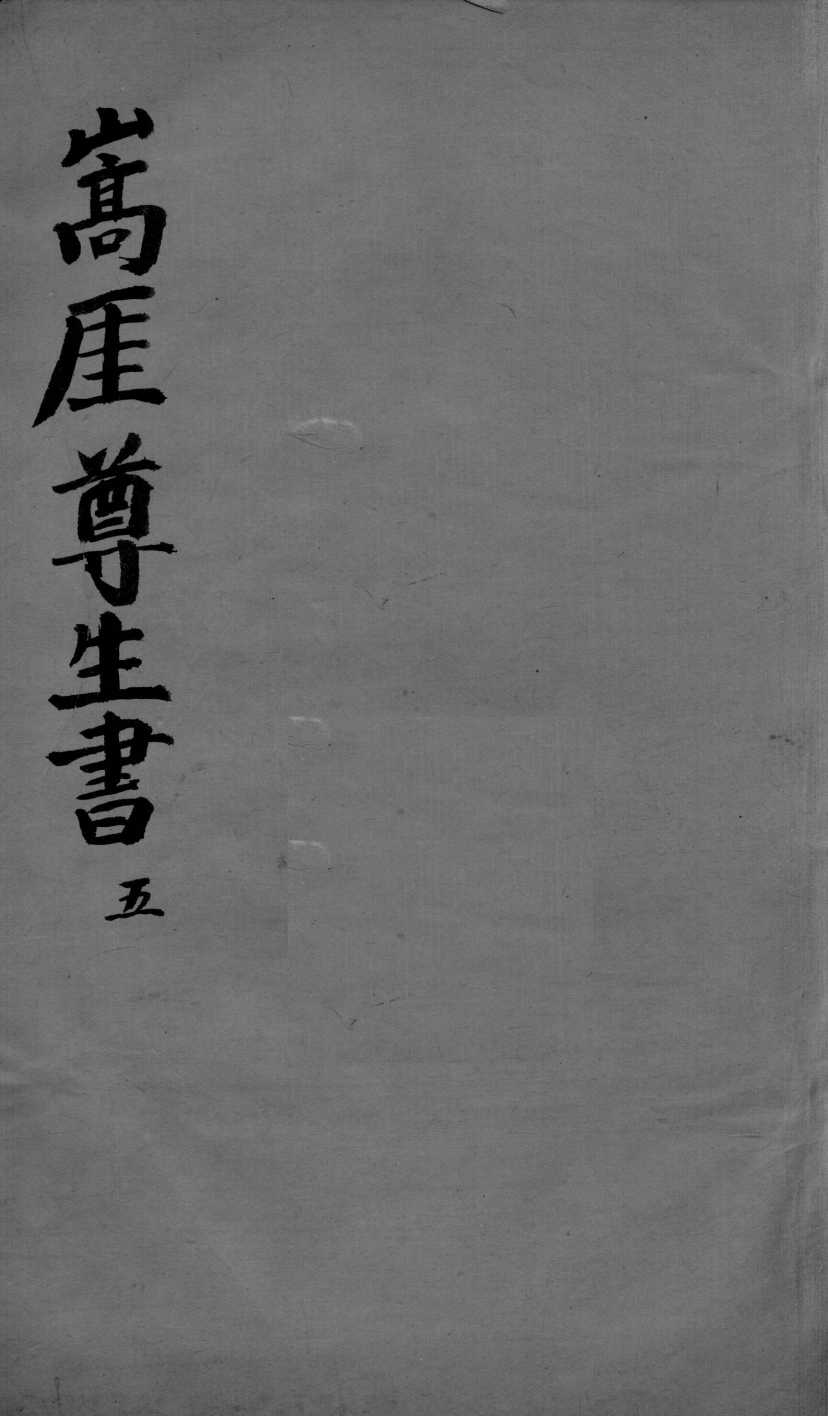 嵩厓尊生書 五